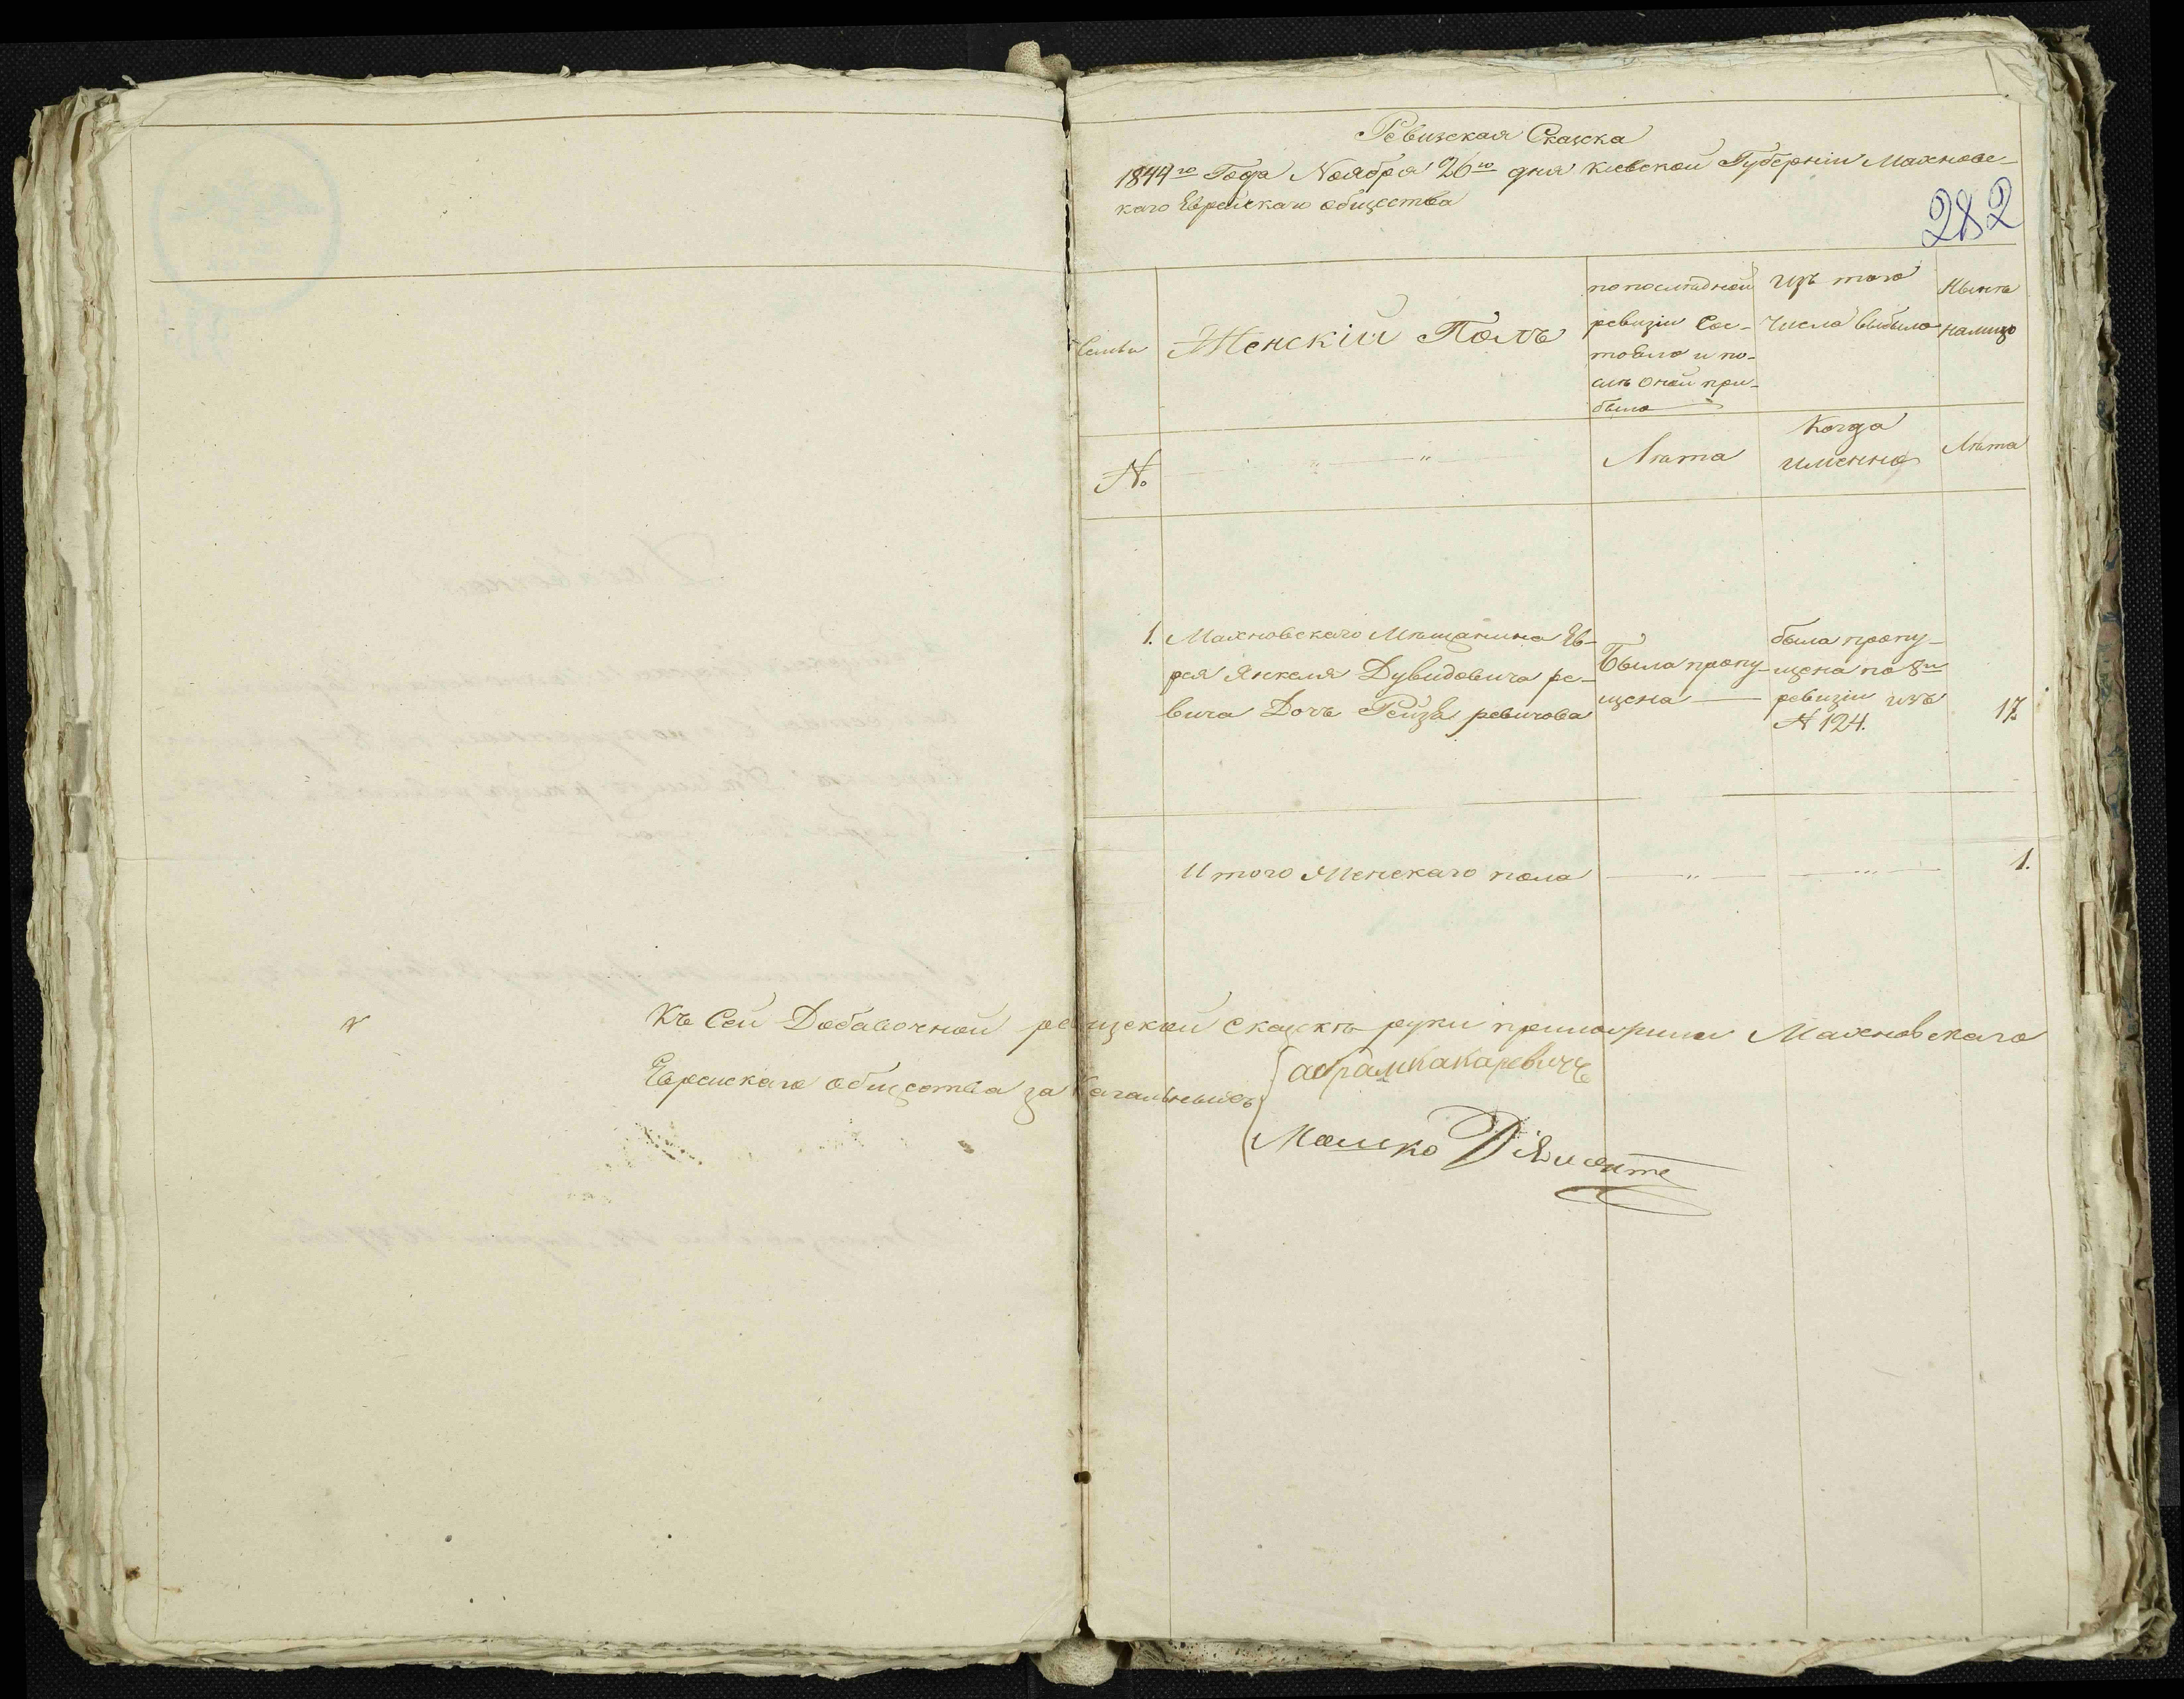 Ревизская Сказка
1844го Года Ноября 26го дня Киевской Губернiи Махновс-
каго Еврейскаго общества
282
Семьи
Женскiй Полъ
по последней
ревизiи Сос-
тояло и по-
слѣ оной при-
было
изъ того
Числа выбыло
Нынѣ
налицо
№
Лѣта
Когда
именно
Лѣта
1. Махновскаго Мѣщанина Ев-
рея Янкеля Дувидовича ре-
вича Дочь Рейза ревичова
Была пропу-
щена
была пропу-
щена по 8й
ревизiи изъ
№ 124.
17
Итого Женскаго пола
1.
Къ Сей Добавочной ревизской сказкѣ руки приложили Махновскаго
Еврейскаго общества за Кагальныхъ
Мошко